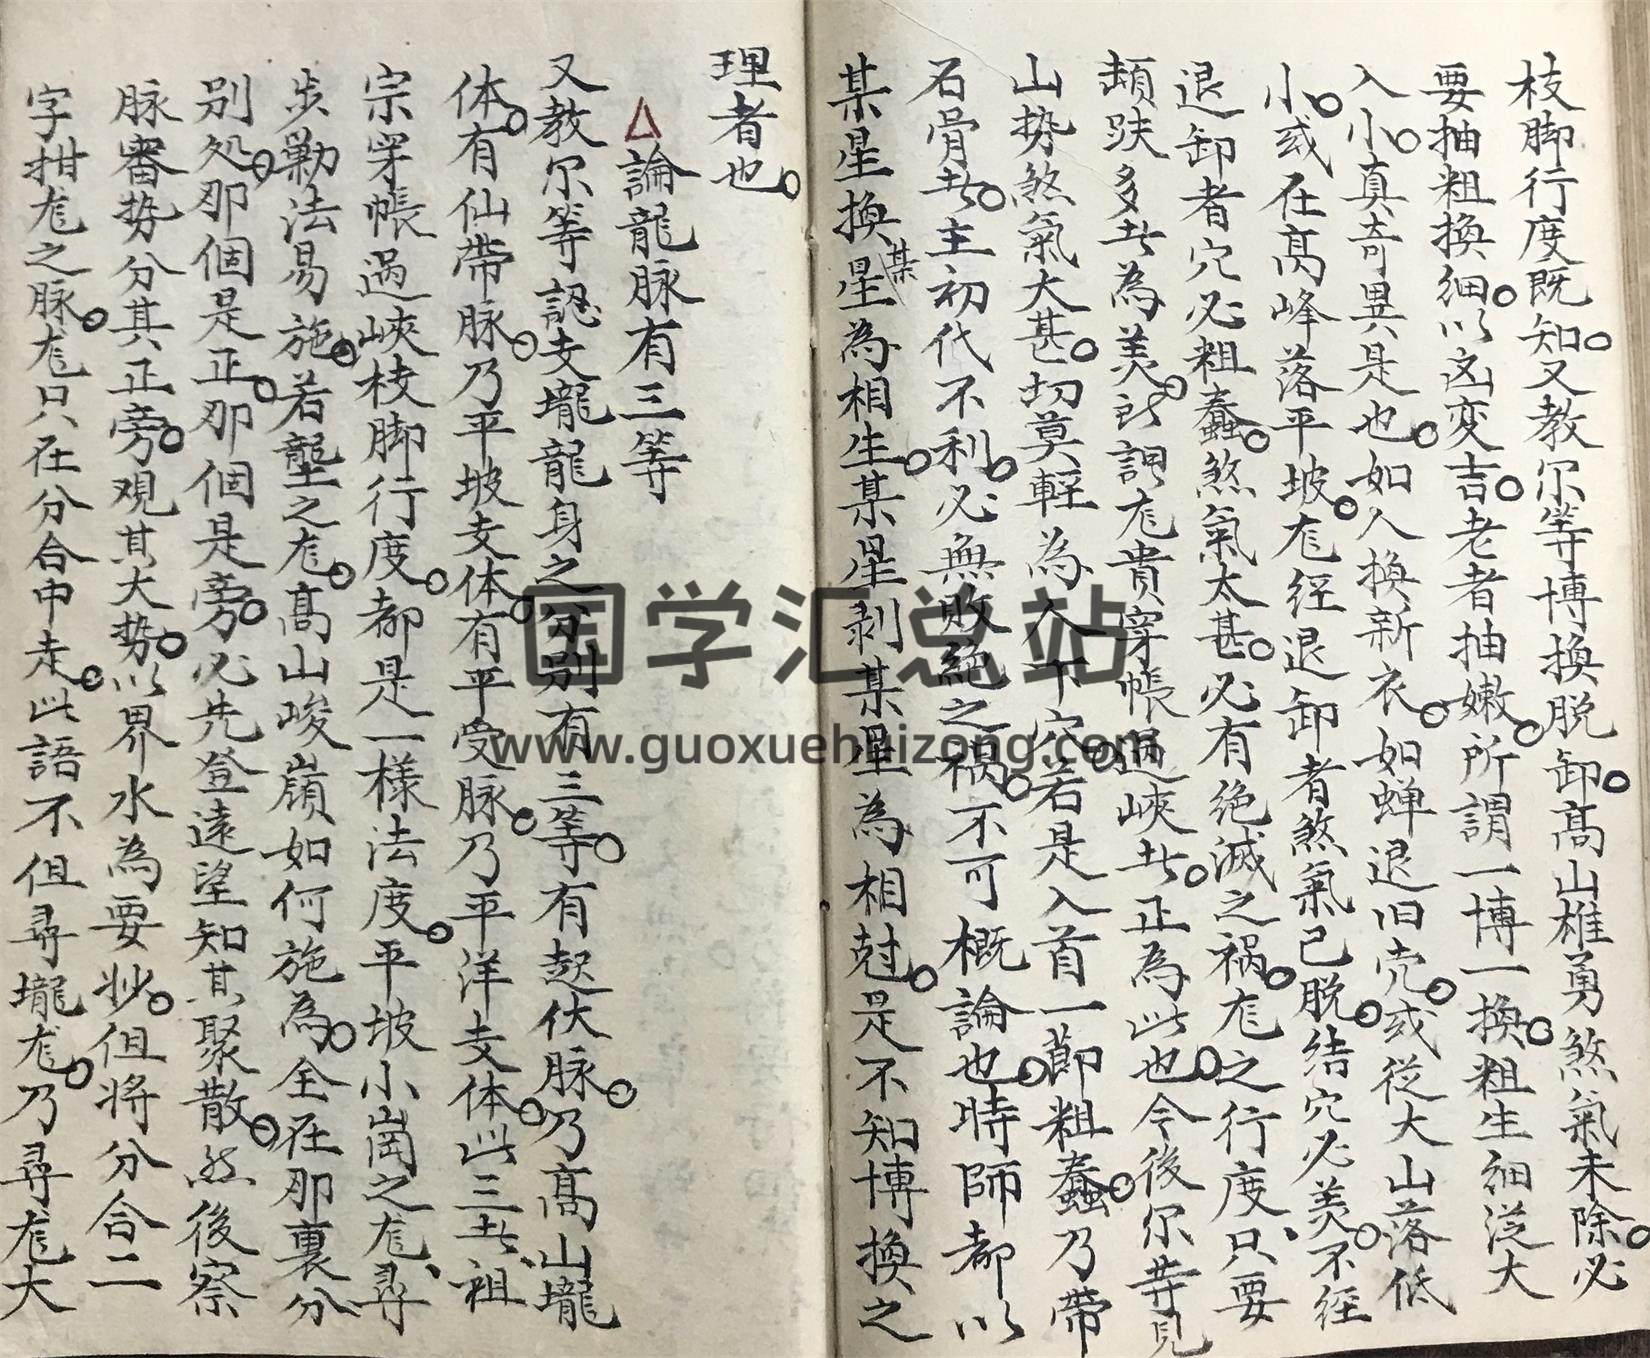 枝脚行度既知又教尔等博換脱卸高山雄勇煞氣未除必
要抽粗換細以凶变吉老者抽嫩所謂一博一換粗生细從大
入小真奇異是也如人換新衣如蝉退旧壳或從大山落低
小或在高峰落平坡尨經退卸者煞氣已脱结穴必美不经
退卸者穴必粗蠢煞氣太甚必有绝滅之禍尨之行度只要
頓跌多此為美所謂尨貴穿帳過峡此正為此也今後尔等見
山势煞氣大甚切莫輕為入下穴若是入首一節粗蠢乃帶
石骨此主初代不利必無敗絕之禍不可概論也時師都以
某星換某星為相生某星剥某星為相尅是不知博換之
理者也
論龍脉有三等
又教尔等認支壠龍身之分别有三等有起伏脉乃高山壠
体有仙带脉乃平坡支体有平受脉乃平洋支体此三此祖
宗穿帳過峡枝脚行度都是一樣法度平坡小崗之尨尋
步勤法易施若壟之尨高山峻嶺如何施為全在那裏分
别処那個是正那個是旁必先登遠望知其聚散然後察
脉審势分其正旁观其大势以界水為要妙但将分合二
字拑尨之脉尨只在分合中走此語不但尋壠尨乃尋尨大
国学汇总站
www.guoxuehuizong.com